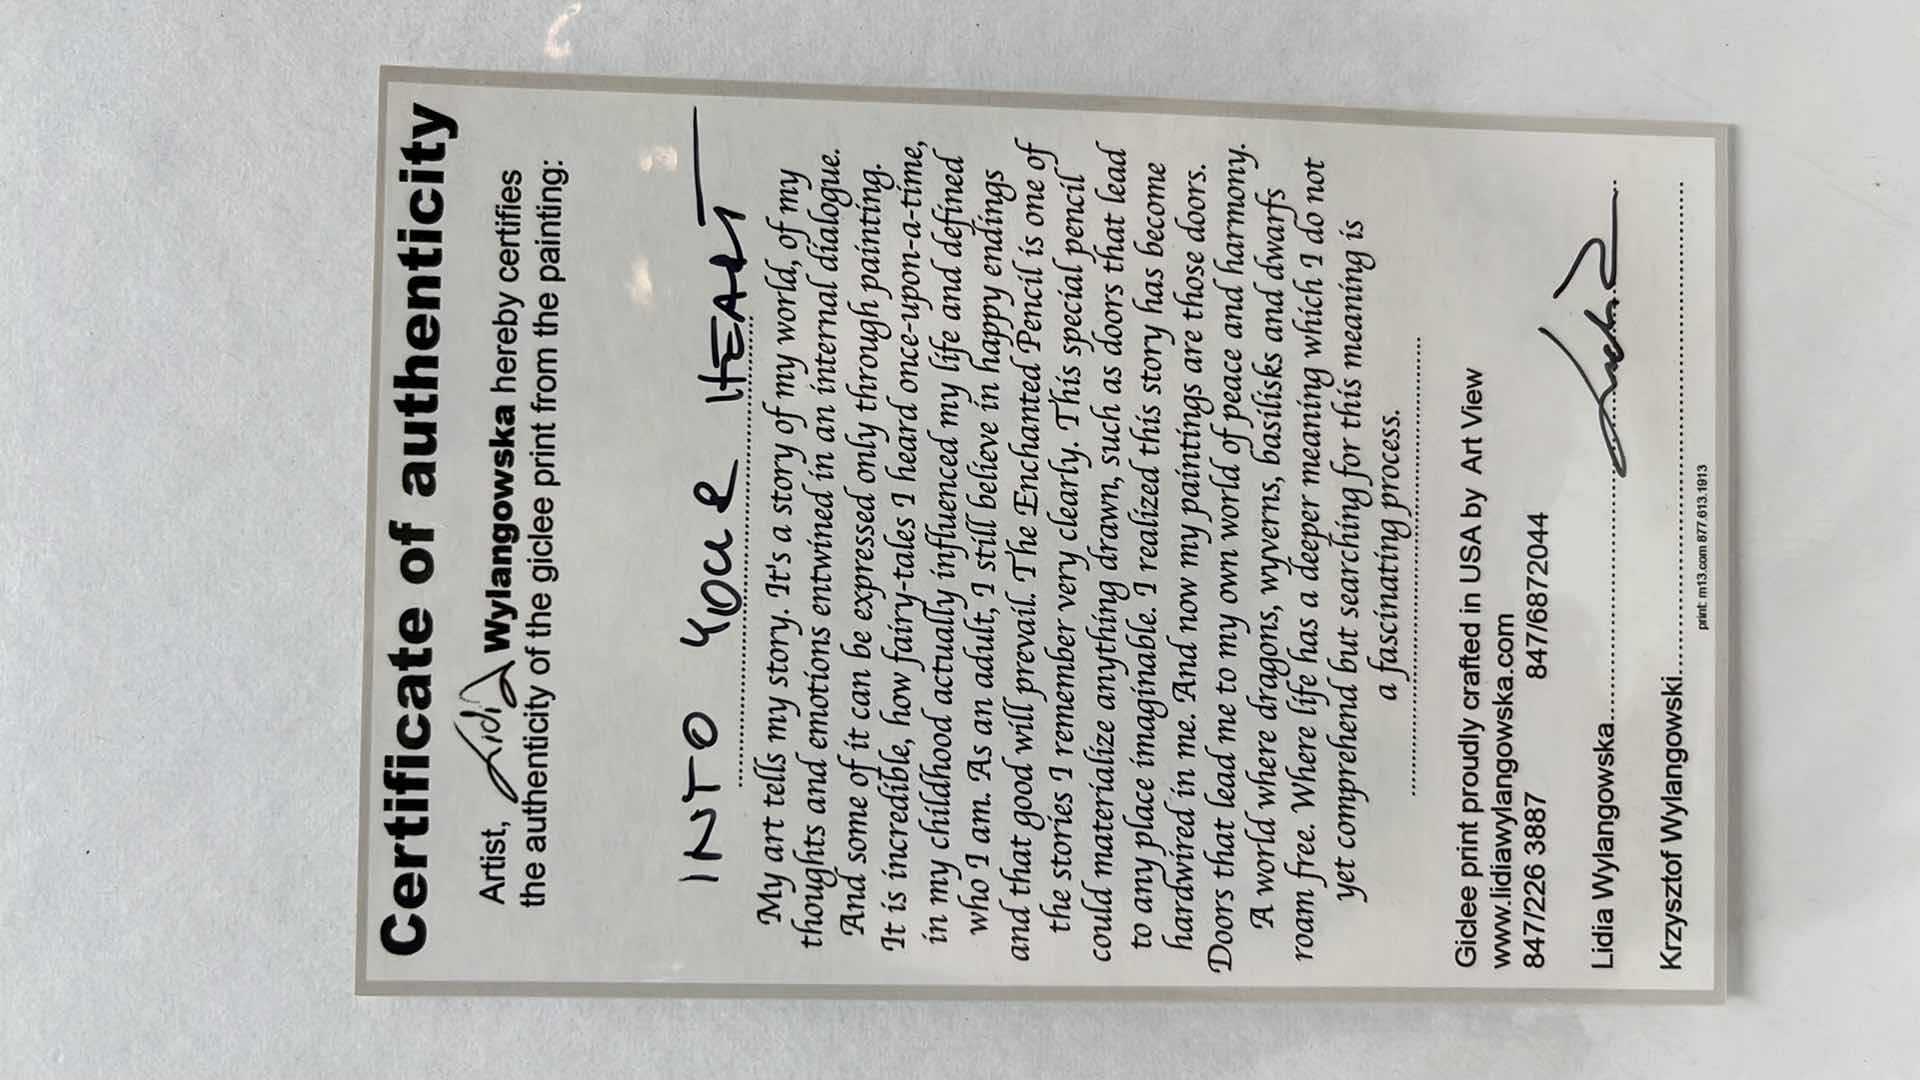 Certificate of authenticity
Artist, Lidia Wylangowska hereby certifies
the authenticity of the giclee print from the painting:
INTO YOUR HEART
My art tells my story. It's a story of my world, of my
thoughts and emotions entwined in an internal dialogue.
And some of it can be expressed only through painting.
It is incredible, how fairy-tales I heard once-upon-a-time,
in my childhood actually influenced my life and defined
who I am. As an adult, I still believe in happy endings
and that good will prevail. The Enchanted Pencil is one of
the stories I remember very clearly. This special pencil
could materialize anything drawn, such as doors that lead
to any place imaginable. I realized this story has become
hardwired in me. And now my paintings are those doors.
Doors that lead me to my own world of peace and harmony.
A world where dragons, wyverns, basilisks and dwarfs
roam free. Where life has a deeper meaning which I do not
yet comprehend but searching for this meaning is
a fascinating process.
Giclee print proudly crafted in USA by Art View
www.lidiawylangowska.com
847/226 3887 847/6872044
Lidia Wylangowska
Krzysztof Wylangowski
print: m13.com 877.613.1913